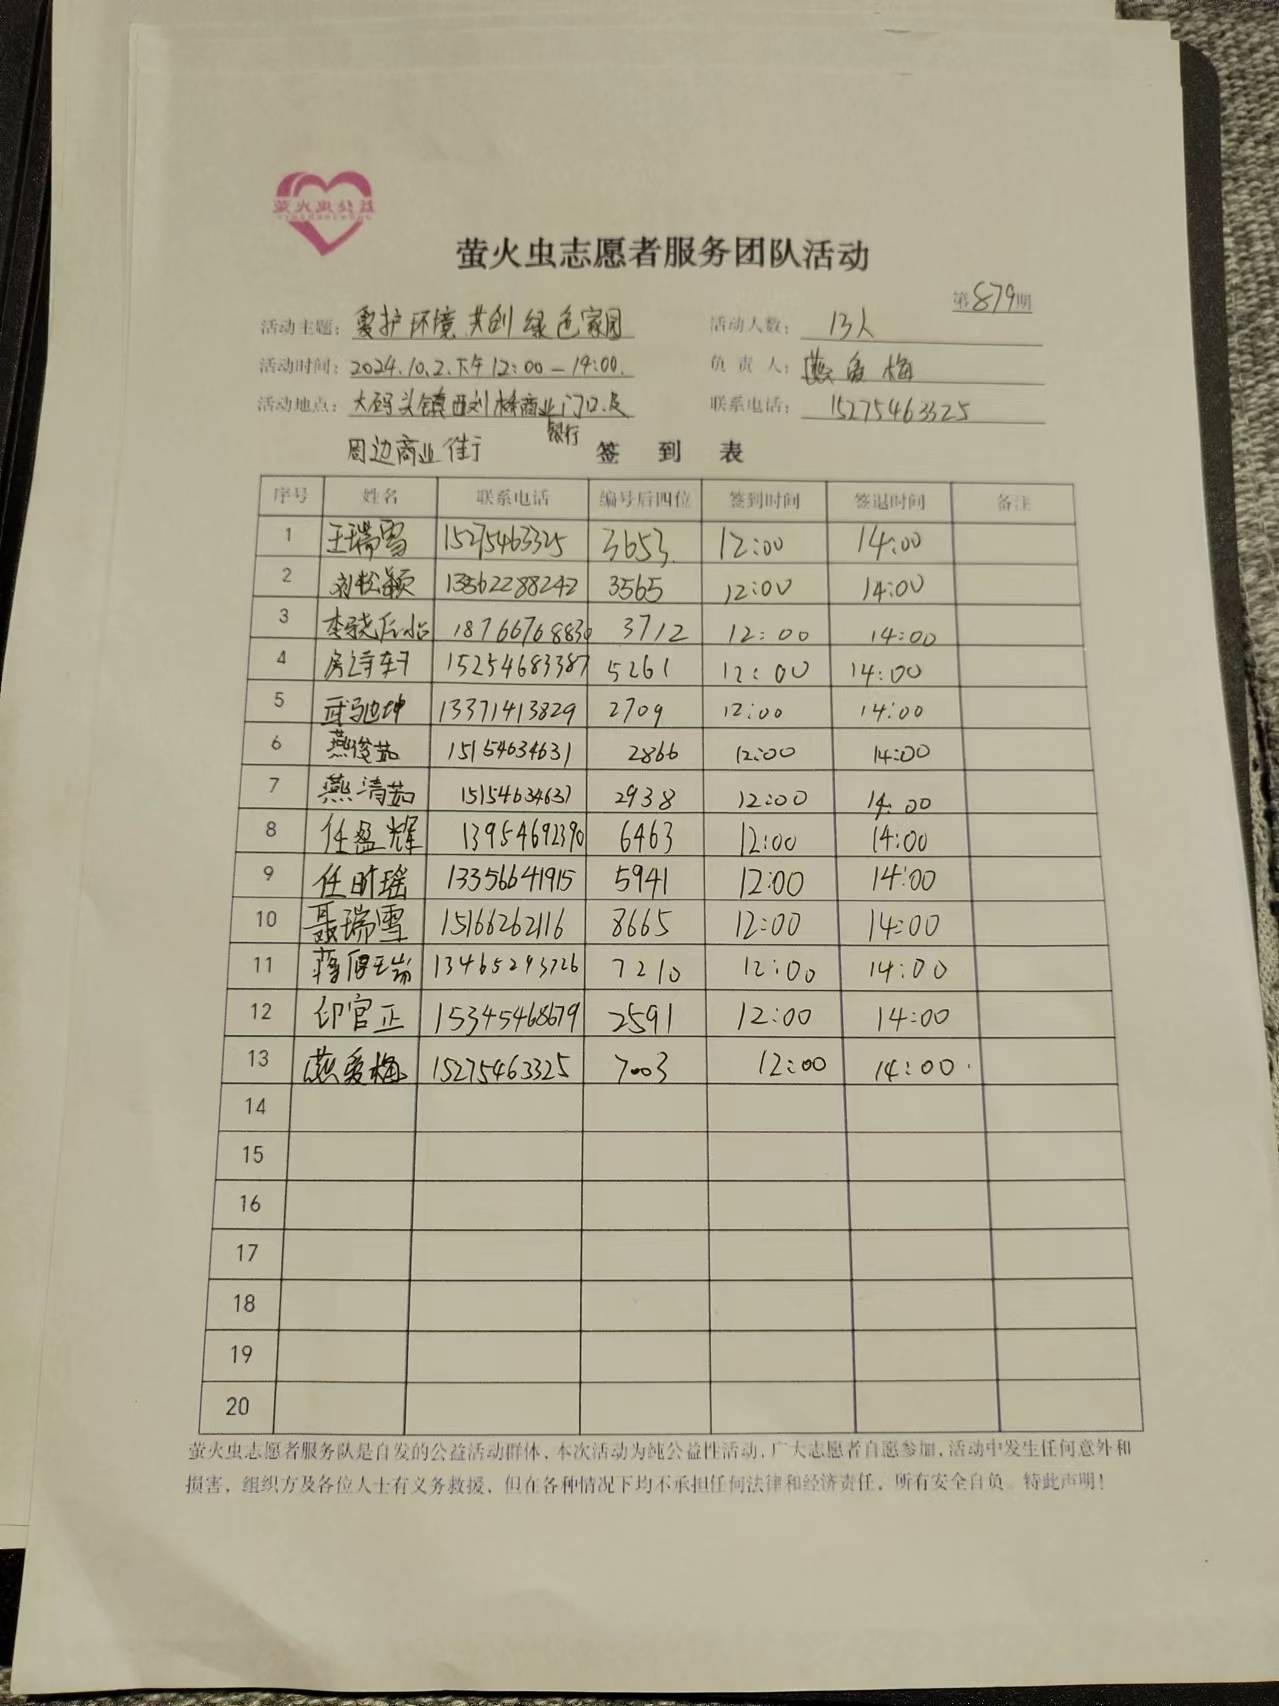 萤火虫公益
萤火虫志愿者服务团队活动
第879期
活动主题: 爱护环境 共创绿色家园 活动人数: 13人
活动时间: 2024.10.2.下午12:00-14:00. 负责人: 燕爱梅
活动地点: 大码头镇西刘桥商业银行门口及 联系电话: 15275463325
周边商业街
签到表
序号 姓名 联系电话 编号后四位 签到时间 签退时间 备注
1 王瑞雪 15275463325 3653 12:00 14:00
2 刘松颖 13562288242 3565 12:00 14:00
3 18766768830 3712 12:00 14:00
4 15254683387 5261 12:00 14:00
5 13371413829 2709 12:00 14:00
6 燕俊茹 15154634631 2866 12:00 14:00
7 燕清茹 15154634631 2938 12:00 14:00
8 任盈辉 13954692390 6463 12:00 14:00
9 任时瑶 13356641915 5941 12:00 14:00
10 聂瑞雪 15166262116 8665 12:00 14:00
11 13465293726 7210 12:00 14:00
12 印官正 15345468679 2591 12:00 14:00
13 燕爱梅 15275463325 7003 12:00 14:00
14
15
16
17
18
19
20
萤火虫志愿者服务队是自发的公益活动群体，本次活动为纯公益性活动，广大志愿者自愿参加，活动中发生任何意外和
损害，组织方及各位人士有义务救援，但在各种情况下均不承担任何法律和经济责任，所有安全自负。特此声明！